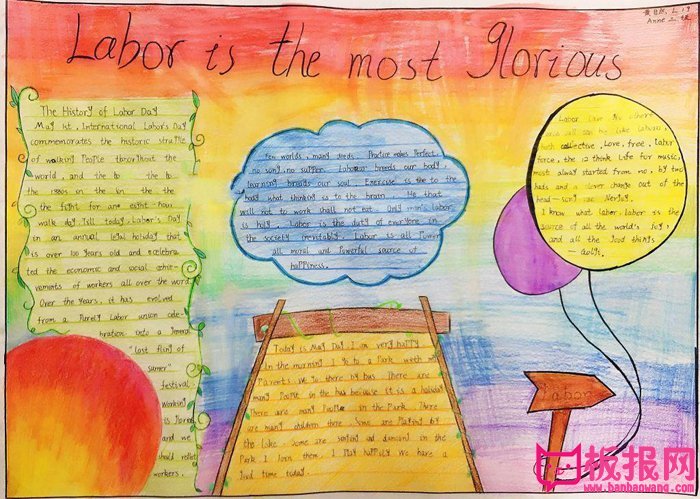 Labor is the most glorious
Anne
The History of Labor Day
May 1st, International Labor's Day
commemorates the historic struple
of walking People throughout the
world, and the to the to
the 1880s in the in the the
the fight for ane eight-hour
walk day Till today, Labor's Day
is an annual legal holiday that
is over 100 years old and celebra
ted the economic and social achie-
vements of workers all over the word
Over the years, it has evolved
from a Purely Labor union cele-
bration into a general
"last fling of
sumer"
festival
working
is
and we
should
workers.
Few worlds, many deeds. Practice makes Perfect.
no sung, no supper. Labour breeds our body
learning breads our soul. Exercise is the to the
body what thinking is to the brain. He that
will not to work shall not eat. Only man's labor
is holy. Labor is the duty of everyone in
the society Labor is all Power
all moral and Powerful source of
happiness.
Labor, Love the others
and all can be like labour,
both collective, Love, free, labor
force, the 12 think life for music,
most always started from no, by two
hads and a lever change out of the
head
I know what labor, labor is the
source of all the world's joy,
and all the good things
Today is May Day I am very happy
In the morning I go to a Park with my
Parents We go there by bus There are
many People in the bus because it is a holiday
There are many People in the Park There
are many children there Some are Playing by
the lake Some are singing and dancing in the
Park I join them. I Play happily We have a
good time today.
Labor
板报网
www.banbaowang.com